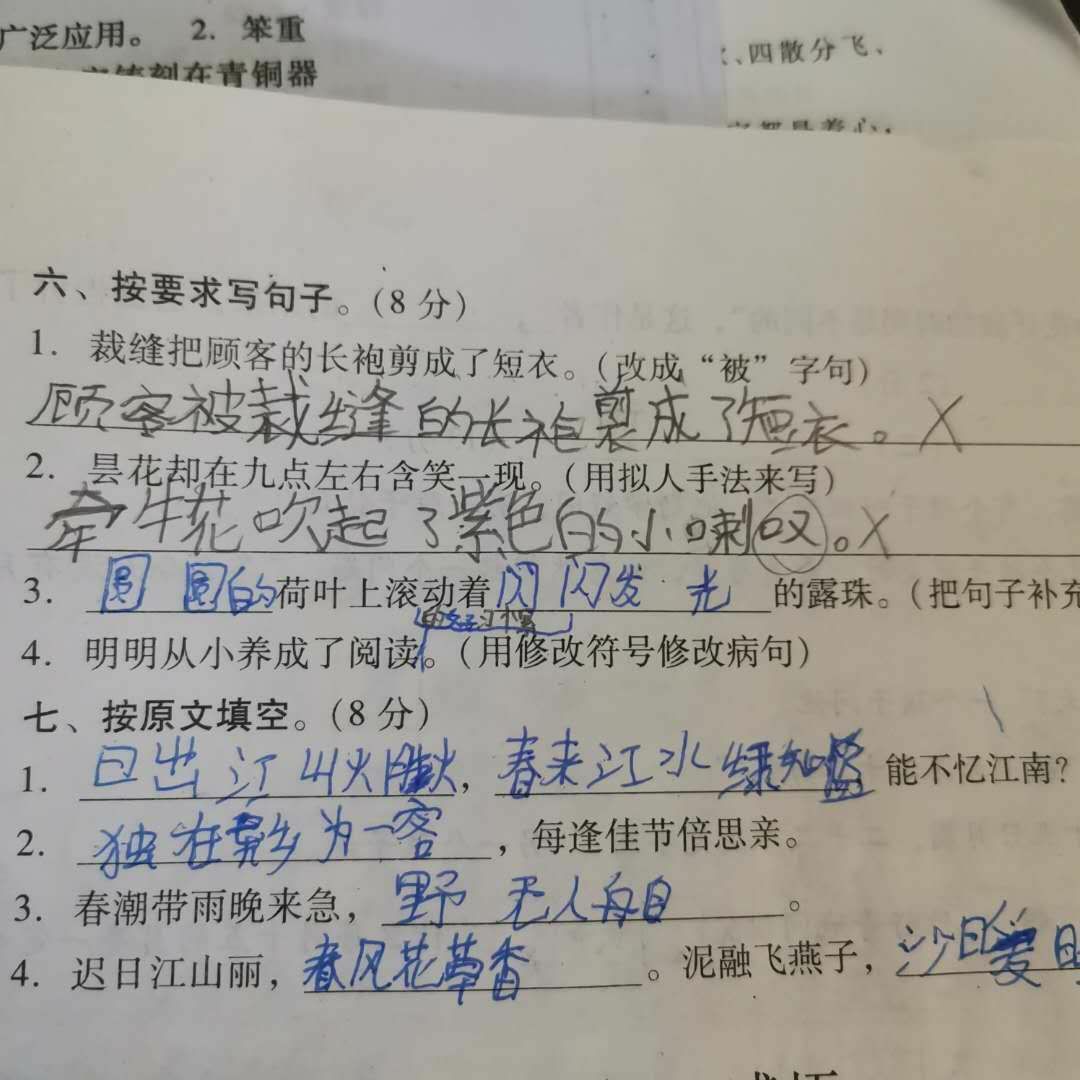 广泛应用。 2. 笨重
刻在青铜器
、四散分飞、
六、按要求写句子。(8 分)
1. 裁缝把顾客的长袍剪成了短衣。(改成“被”字句)
顾客被裁缝的长袍剪成了短衣。X
2. 昙花却在九点左右含笑一现。(用拟人手法来写)
牵牛花吹起了紫色的小喇叹。X
3. 圆圆的荷叶上滚动着闪闪发光的露珠。(把句子补充
的好习惯
4. 明明从小养成了阅读。(用修改符号修改病句)
七、按原文填空。(8 分)
1. 日出江 火胜火,春来江水绿如 能不忆江南?
2. 独在异乡为一客,每逢佳节倍思亲。
3. 春潮带雨晚来急,野 无人舟自。
4. 迟日江山丽,春风花草香。泥融飞燕子,沙